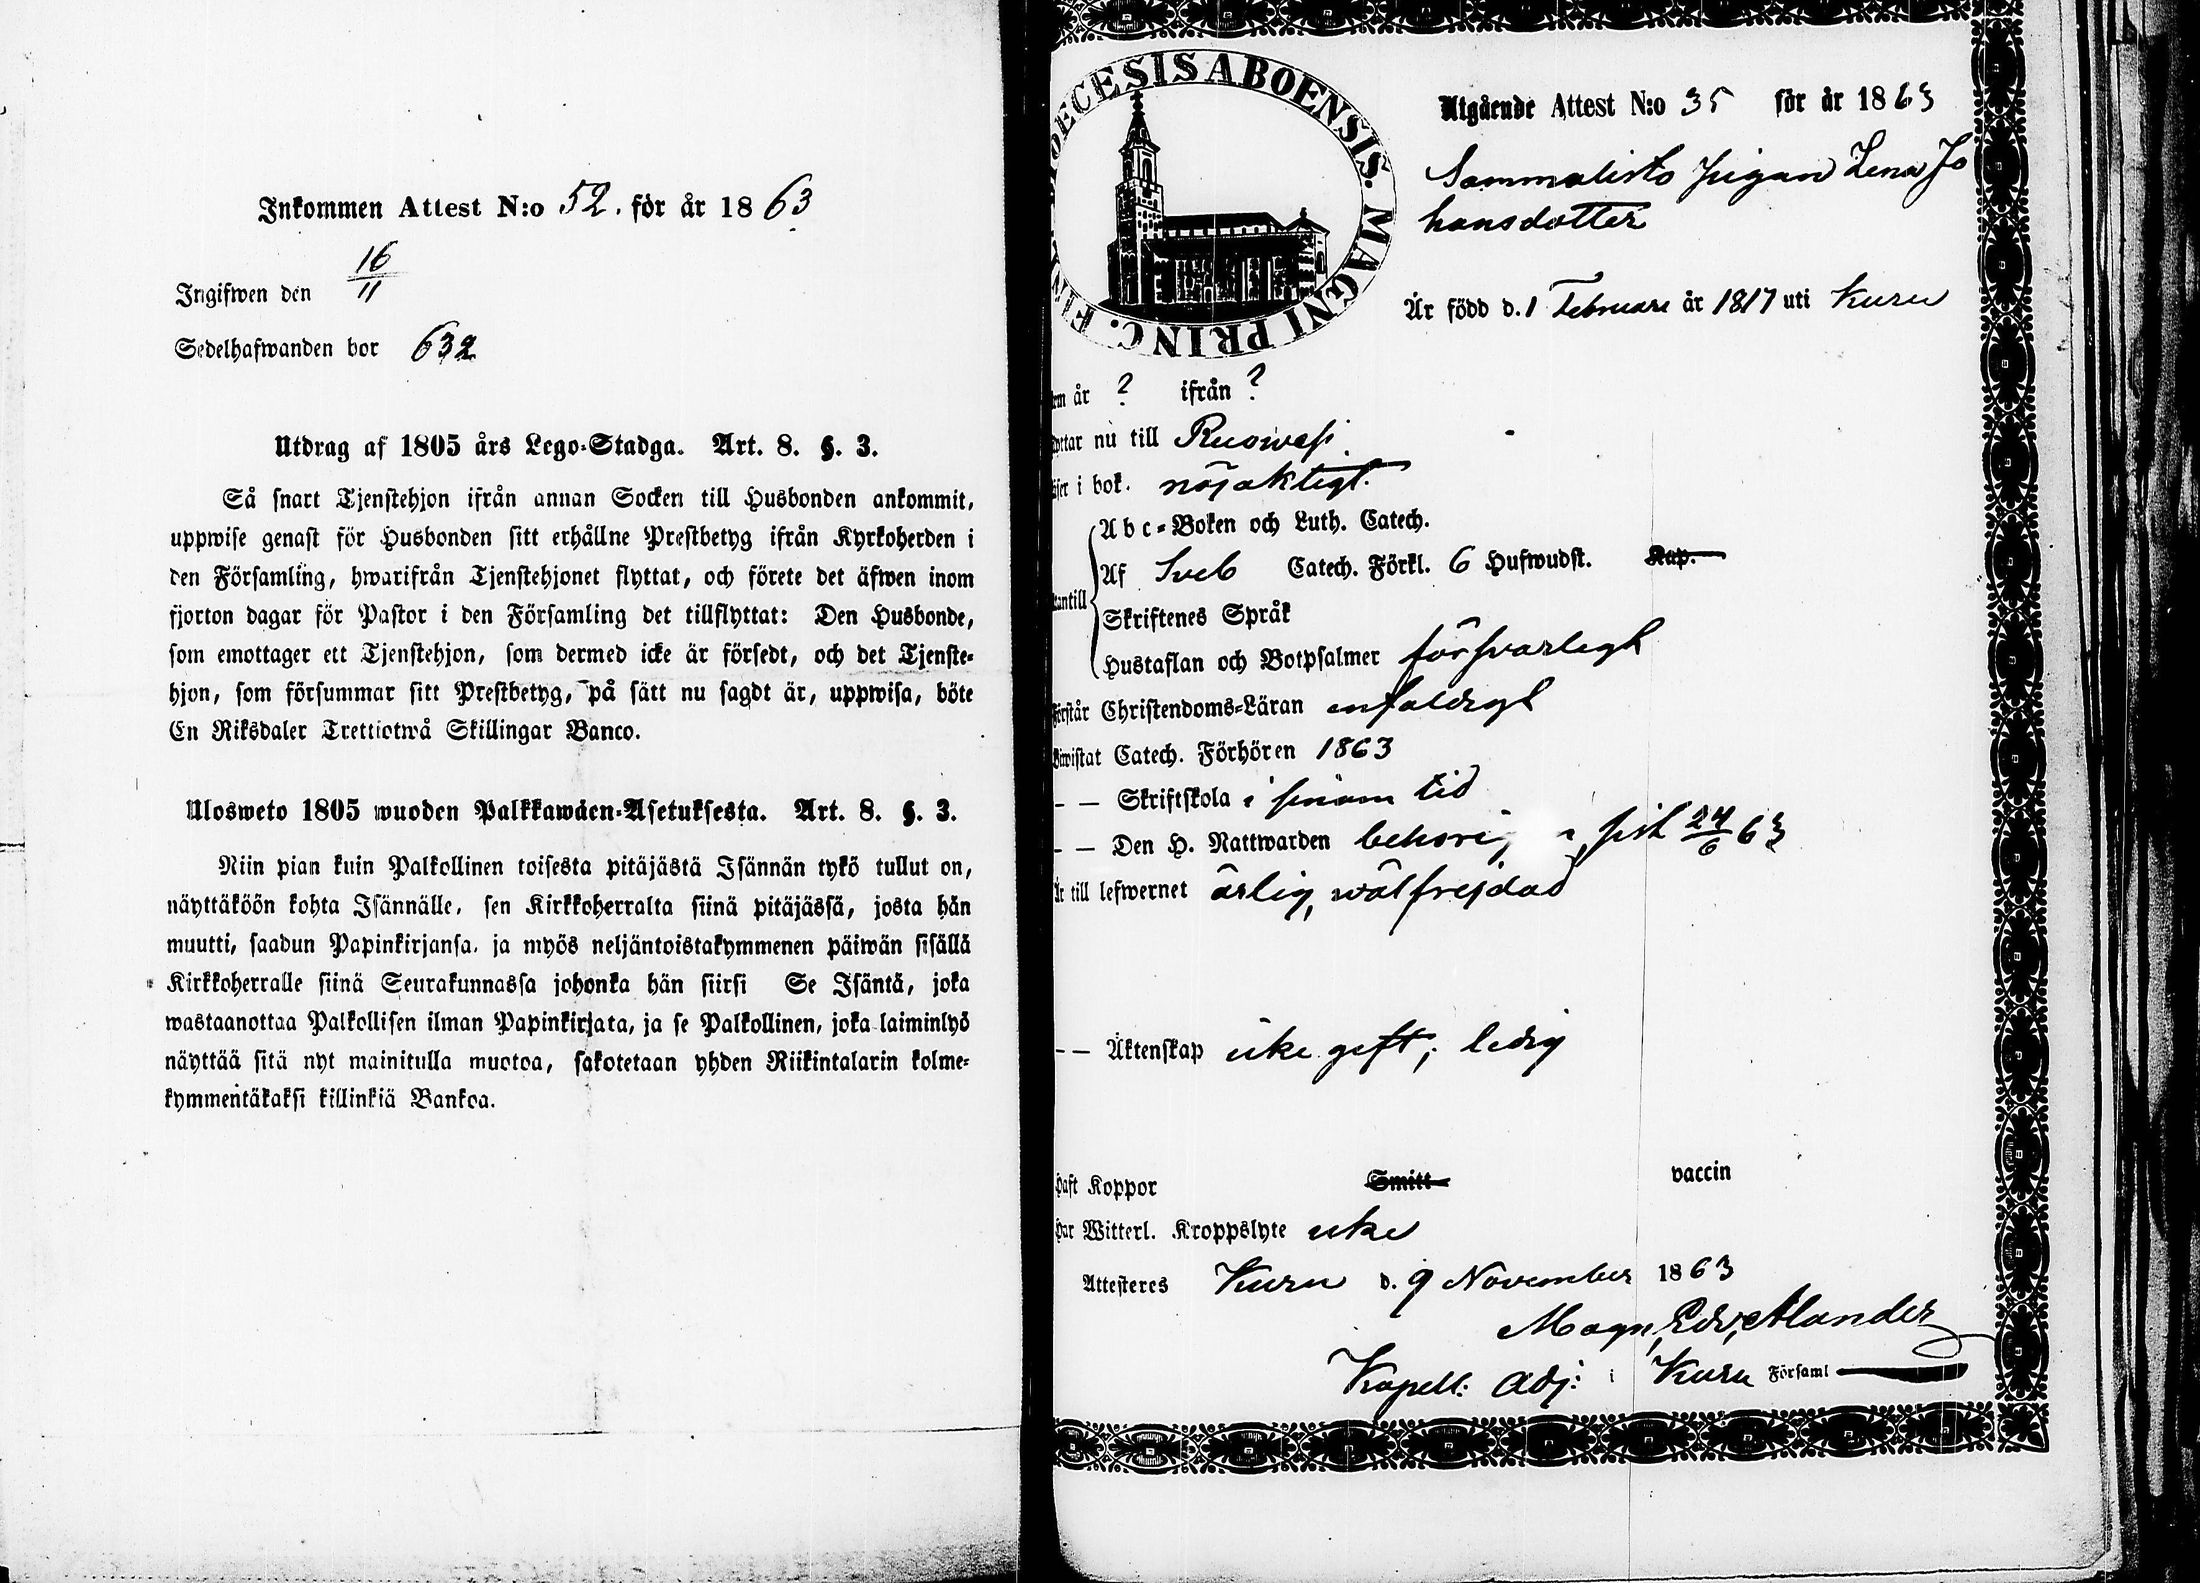 Inkommen Attest N:o 52. för år 1863
Ingifwen den 16/11
Sedelhafwanden bor 632
Utdrag af 1805 års Lego-Stadga. Art. 8. §. 3.
Så snart Tjenstehjon ifrån annan Socken till Husbonden ankommit,
uppwise genast för Husbonden sitt erhållne Prestbetyg ifrån Kyrkoherden i
den Församling, hwarifrån Tjenstehjonet flyttat, och förete det äfwen inom
fjorton dagar för Pastor i den Församling det tillflyttat: Den Husbonde,
som emottager ett Tjenstehjon, som dermed icke är försedt, och det Tjenste-
hjon, som försummar sitt Prestbetyg, på sätt nu sagdt är, uppwisa, böte
En Riksdaler Trettiotwå Skillingar Banco.
Ulosweto 1805 wuoden Palkkawäen-Asetuksesta. Art. 8. §. 3.
Niin pian kuin Palkollinen toisesta pitäjästä Isännän tykö tullut on,
näyttäköön kohta Isännälle, sen Kirkkoherralta siinä pitäjässä, josta hän
muutti, saadun Papinkirjansa, ja myös neljäntoistakymmenen päiwän sisällä
Kirkkoherralle siinä Seurakunnassa johonka hän siirsi Se Isäntä, joka
wastaanottaa Palkollisen ilman Papinkirjata, ja se Palkollinen, joka laiminlyö
näyttää sitä nyt mainitulla muotoa, sakotetaan yhden Riikintalarin kolme-
kymmentäkaksi killinkiä Bankoa.
DIOECESIS ABOENSIS. MAGNI PRINC. FINL
Utgående Attest N:o 35 för år 1863
Sammalisto Pigan Lena Jo
hansdotter
Är född d. 1 Februari år 1817 uti Kuru
år ? ifrån ?
nu till Ruowesi
i bok. nöjaktigt.
Abc-Boken och Luth. Catech.
Af Sveb Catech. Förkl. 6 Hufwudst. Kap.
Skriftenes Språk
Hustaflan och Botpsalmer försvarligt
Förstår Christendoms-Läran enfaldigt
Biwistat Catech. Förhören 1863
- - Skriftskola i sinom tid
- - Den H. Nattwarden sist 24/6 63
Är till lefwernet ärlig, wälfrejdad
- - Äktenskap icke gift, ledig
Haft Koppor Smitt vaccin
Har Witterl. Kroppslyte icke
Attesteres Kuru d. 9 November 1863
Magn. Edv. Alander
Kapell: Adj: i Kuru Församl